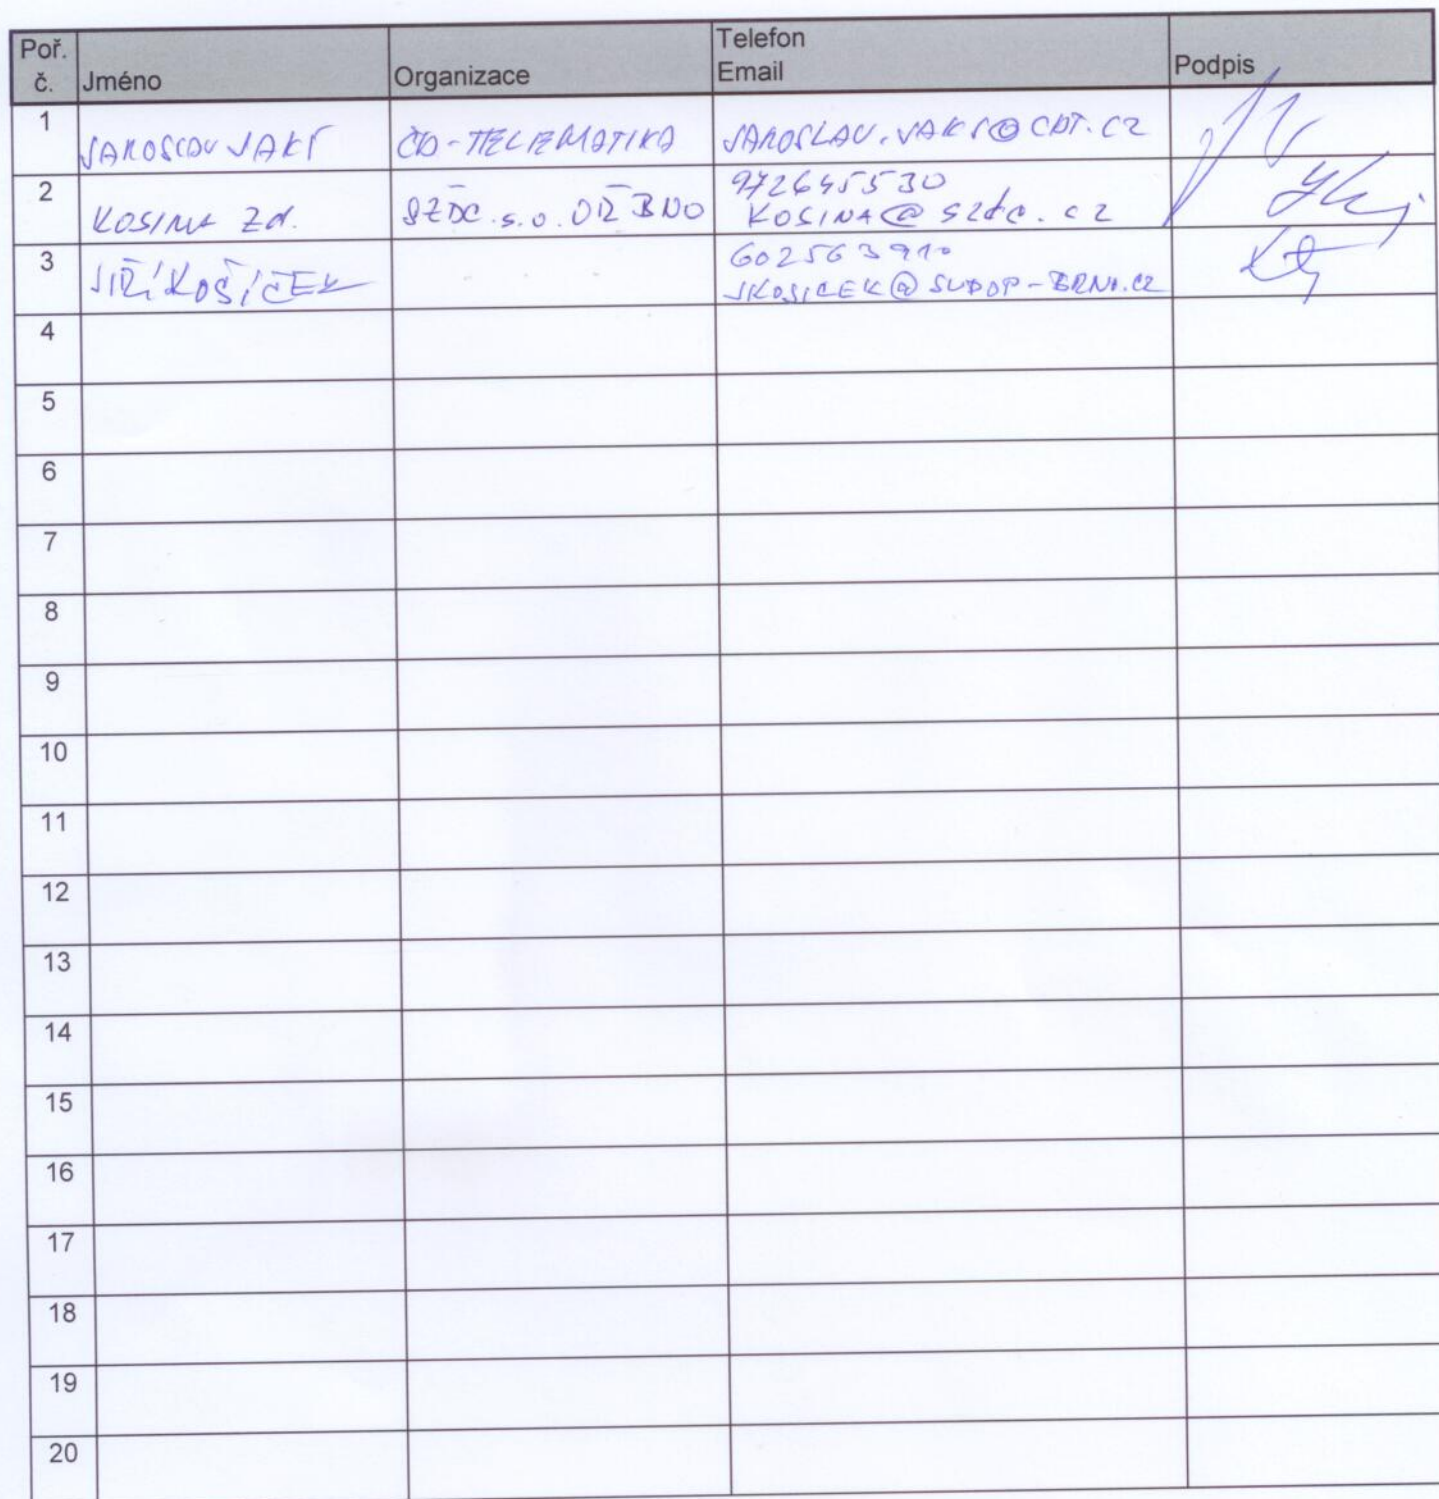 Poř. č. Jméno Organizace Telefon Email Podpis
1 JAROSLAV JAKŠ ČD-TELEMATIKA JAROSLAV.JAKS@CDT.CZ
2 KOSINA Zd. SŽDC.s.o. OŘ BNO 972645530
KOSINA@szdc.cz
3 JIŘÍ KOŠÍČEK 602563910
JKOSICEK@SUDOP-BRNO.CZ
4
5
6
7
8
9
10
11
12
13
14
15
16
17
18
19
20